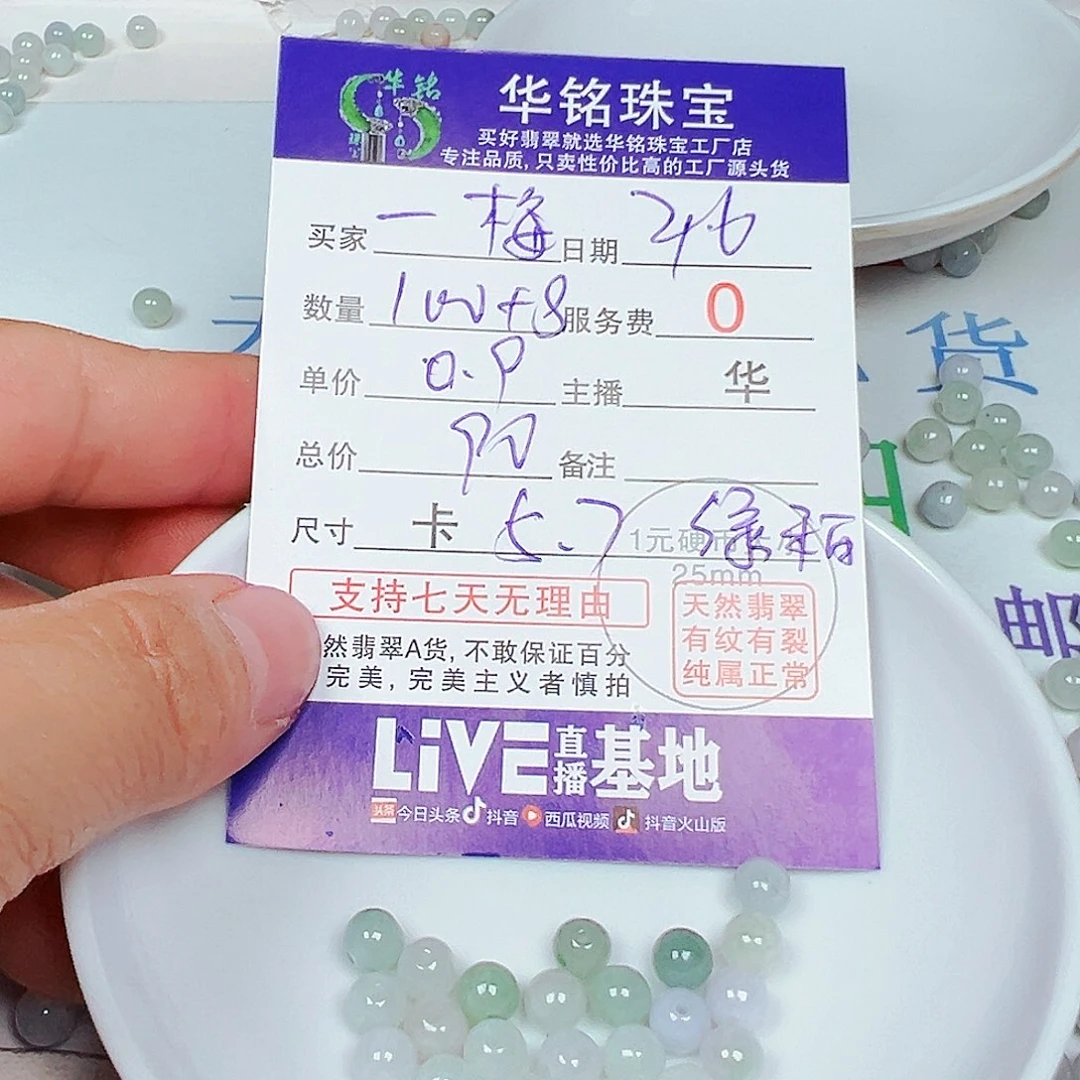 华铭
华铭珠宝
买好翡翠就选华铭珠宝工厂店
专注品质,只卖性价比高的工厂源头货
买家 一梅 日期
数量 100+8 服务费 0
单价 0.9 主播 华
总价 90 备注
尺寸 卡 5.7
1元硬币
25mm
支持七天无理由
天然翡翠
有纹有裂
纯属正常
然翡翠A货,不敢保证百分
完美,完美主义者慎拍
LiVE直播基地
头条 今日头条 抖音 西瓜视频 抖音火山版
货
邮